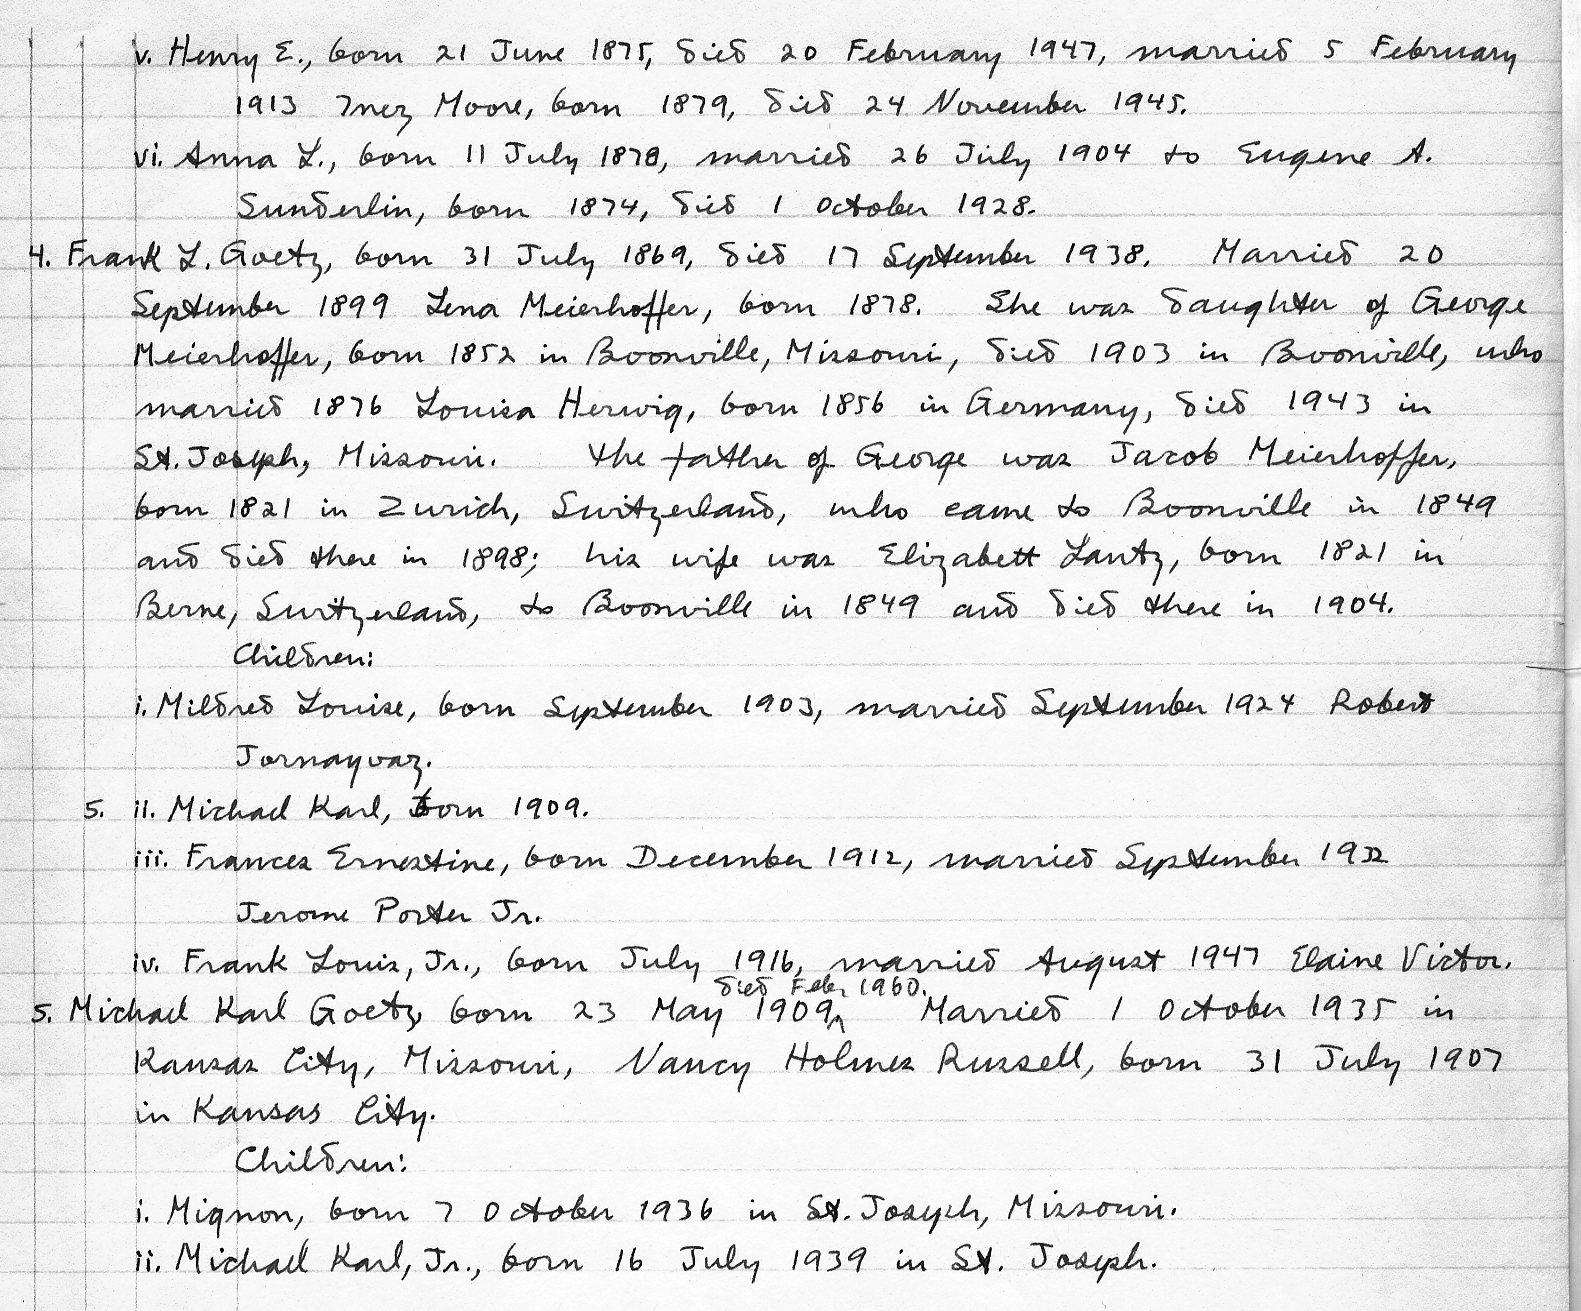 v. Henry E., born 21 June 1875, died 20 February 1947, married 5 February
1913 Inez Moore, born 1879, died 24 November 1945.
vi. Anna L., born 11 July 1878, married 26 July 1904 to Eugene A.
Sunderlin, born 1874, died 1 October 1928.
4. Frank L. Goetz, born 31 July 1869, died 17 September 1938. Married 20
September 1899 Lena Meierhoffer, born 1878. She was daughter of George
Meierhoffer, born 1852 in Boonville, Missouri, died 1903 in Boonville, who
married 1876 Louisa Herwig, born 1856 in Germany, died 1943 in
St. Joseph, Missouri. The father of George was Jacob Meierhoffer,
born 1821 in Zurich, Switzerland, who came to Boonville in 1849
and died there in 1898; his wife was Elizabett Lantz, born 1821 in
Berne, Switzerland, to Boonville in 1849 and died there in 1904.
Children:
i. Mildred Louise, born September 1903, married September 1924 Robert
Jornayvaz.
5. ii. Michael Karl, born 1909.
iii. Frances Ernestine, born December 1912, married September 1932
Jerome Porter Jr.
iv. Frank Louis, Jr., born July 1916, married August 1947 Elaine Victor.
died Feb. 1960.
5. Michael Karl Goetz, born 23 May 1909^ Married 1 October 1935 in
Kansas City, Missouri, Nancy Holmes Russell, born 31 July 1907
in Kansas City.
Children:
i. Mignon, born 7 October 1936 in St. Joseph, Missouri.
ii. Michael Karl, Jr., born 16 July 1939 in St. Joseph.